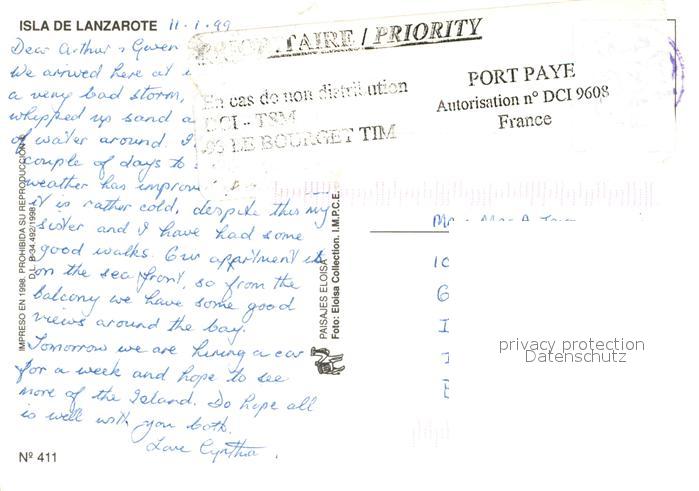 ISLA DE LANZAROTE 11-1-99
Dear Arthur & Gwen
We arrived here at
a very bad storm,
whipped up sand a
of water around. I
couple of days to
weather has improv
it is rather cold, despite this my
sister and I have had some
good walks. Our appartment is
on the sea front, so from the
balcony we have some good
views around the bay.
Tomorrow we are hiring a car
for a week and hope to see
more of the Island. Do hope all
is well with you both.
Love Cynthia.
Nº 411
IMPRESO EN 1998. PROHIBIDA SU REPRODUCCION
D.L. B-34.492/1998
PRIORITAIRE / PRIORITY
En cas de non distribution
DCI - TSM
93 LE BOURGET TIM
PORT PAYE
Autorisation n° DCI 9608
France
PAISAJES ELOISA
Foto: Eloisa Collection. I.M.P.C.E.
privacy protection
Datenschutz